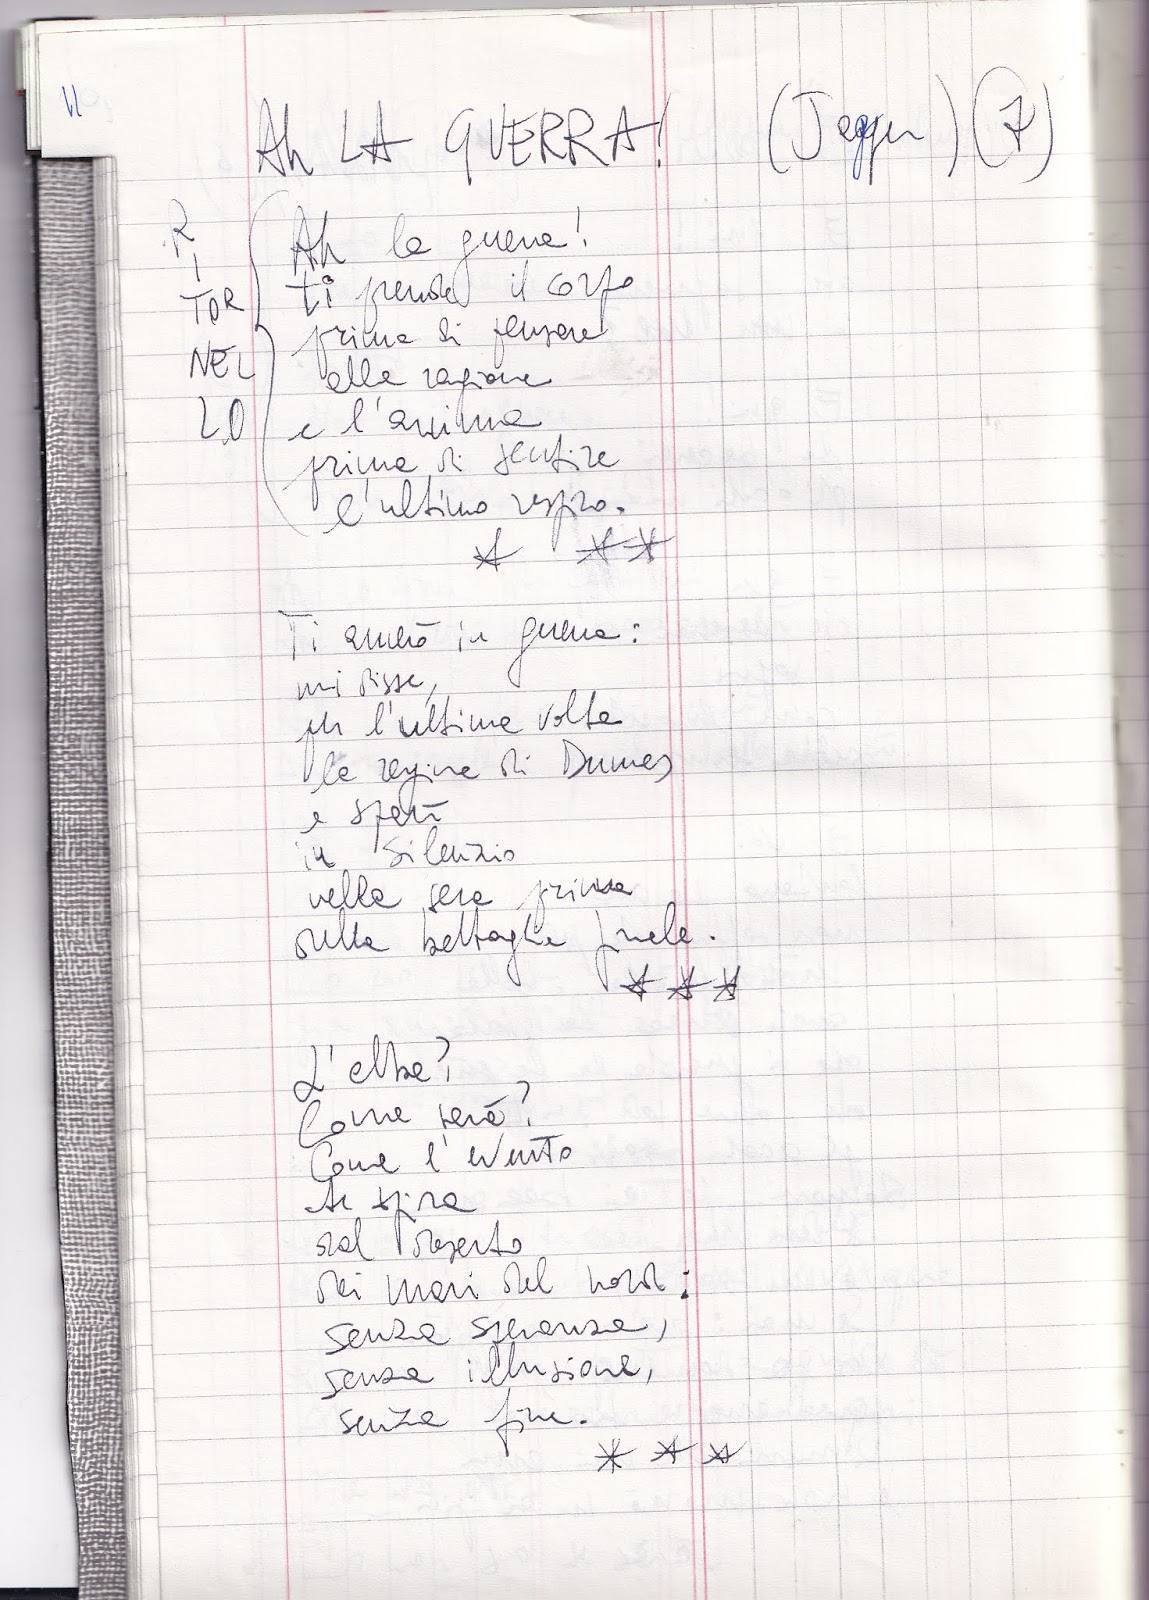 11
Ah LA GUERRA! (Jagger) (7)
RITORNELLO
Ah la guerra!
ti prende il corpo
prima di pensare
alla ragione
e l'anima
prima di sentire
l'ultimo respiro.
* **
Ti amerò in guerra:
mi disse,
per l'ultima volta
la regina di Dumas
e sparì
in silenzio
nella sera prima
della battaglia finale.
* * *
L'alba?
Come sarà?
Come l'evento
spira
dal deserto
dei mari del nord:
senza speranza,
senza illusione,
senza fine.
* * *